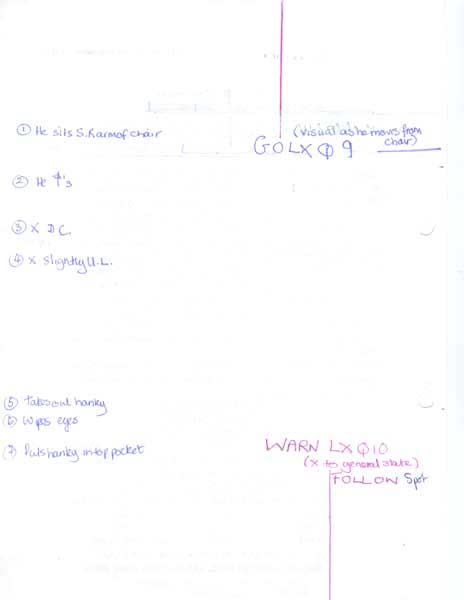 ① He sits S.R arm of chair
(visual as he moves from chair)
GO LX Q 9
② He ↑'s
③ X D C.
④ X slightly U.L.
⑤ Takes out hanky
⑥ Wipes eyes
⑦ Puts hanky in top pocket
WARN LX Q 10
(X to general state)
FOLLOW Spot